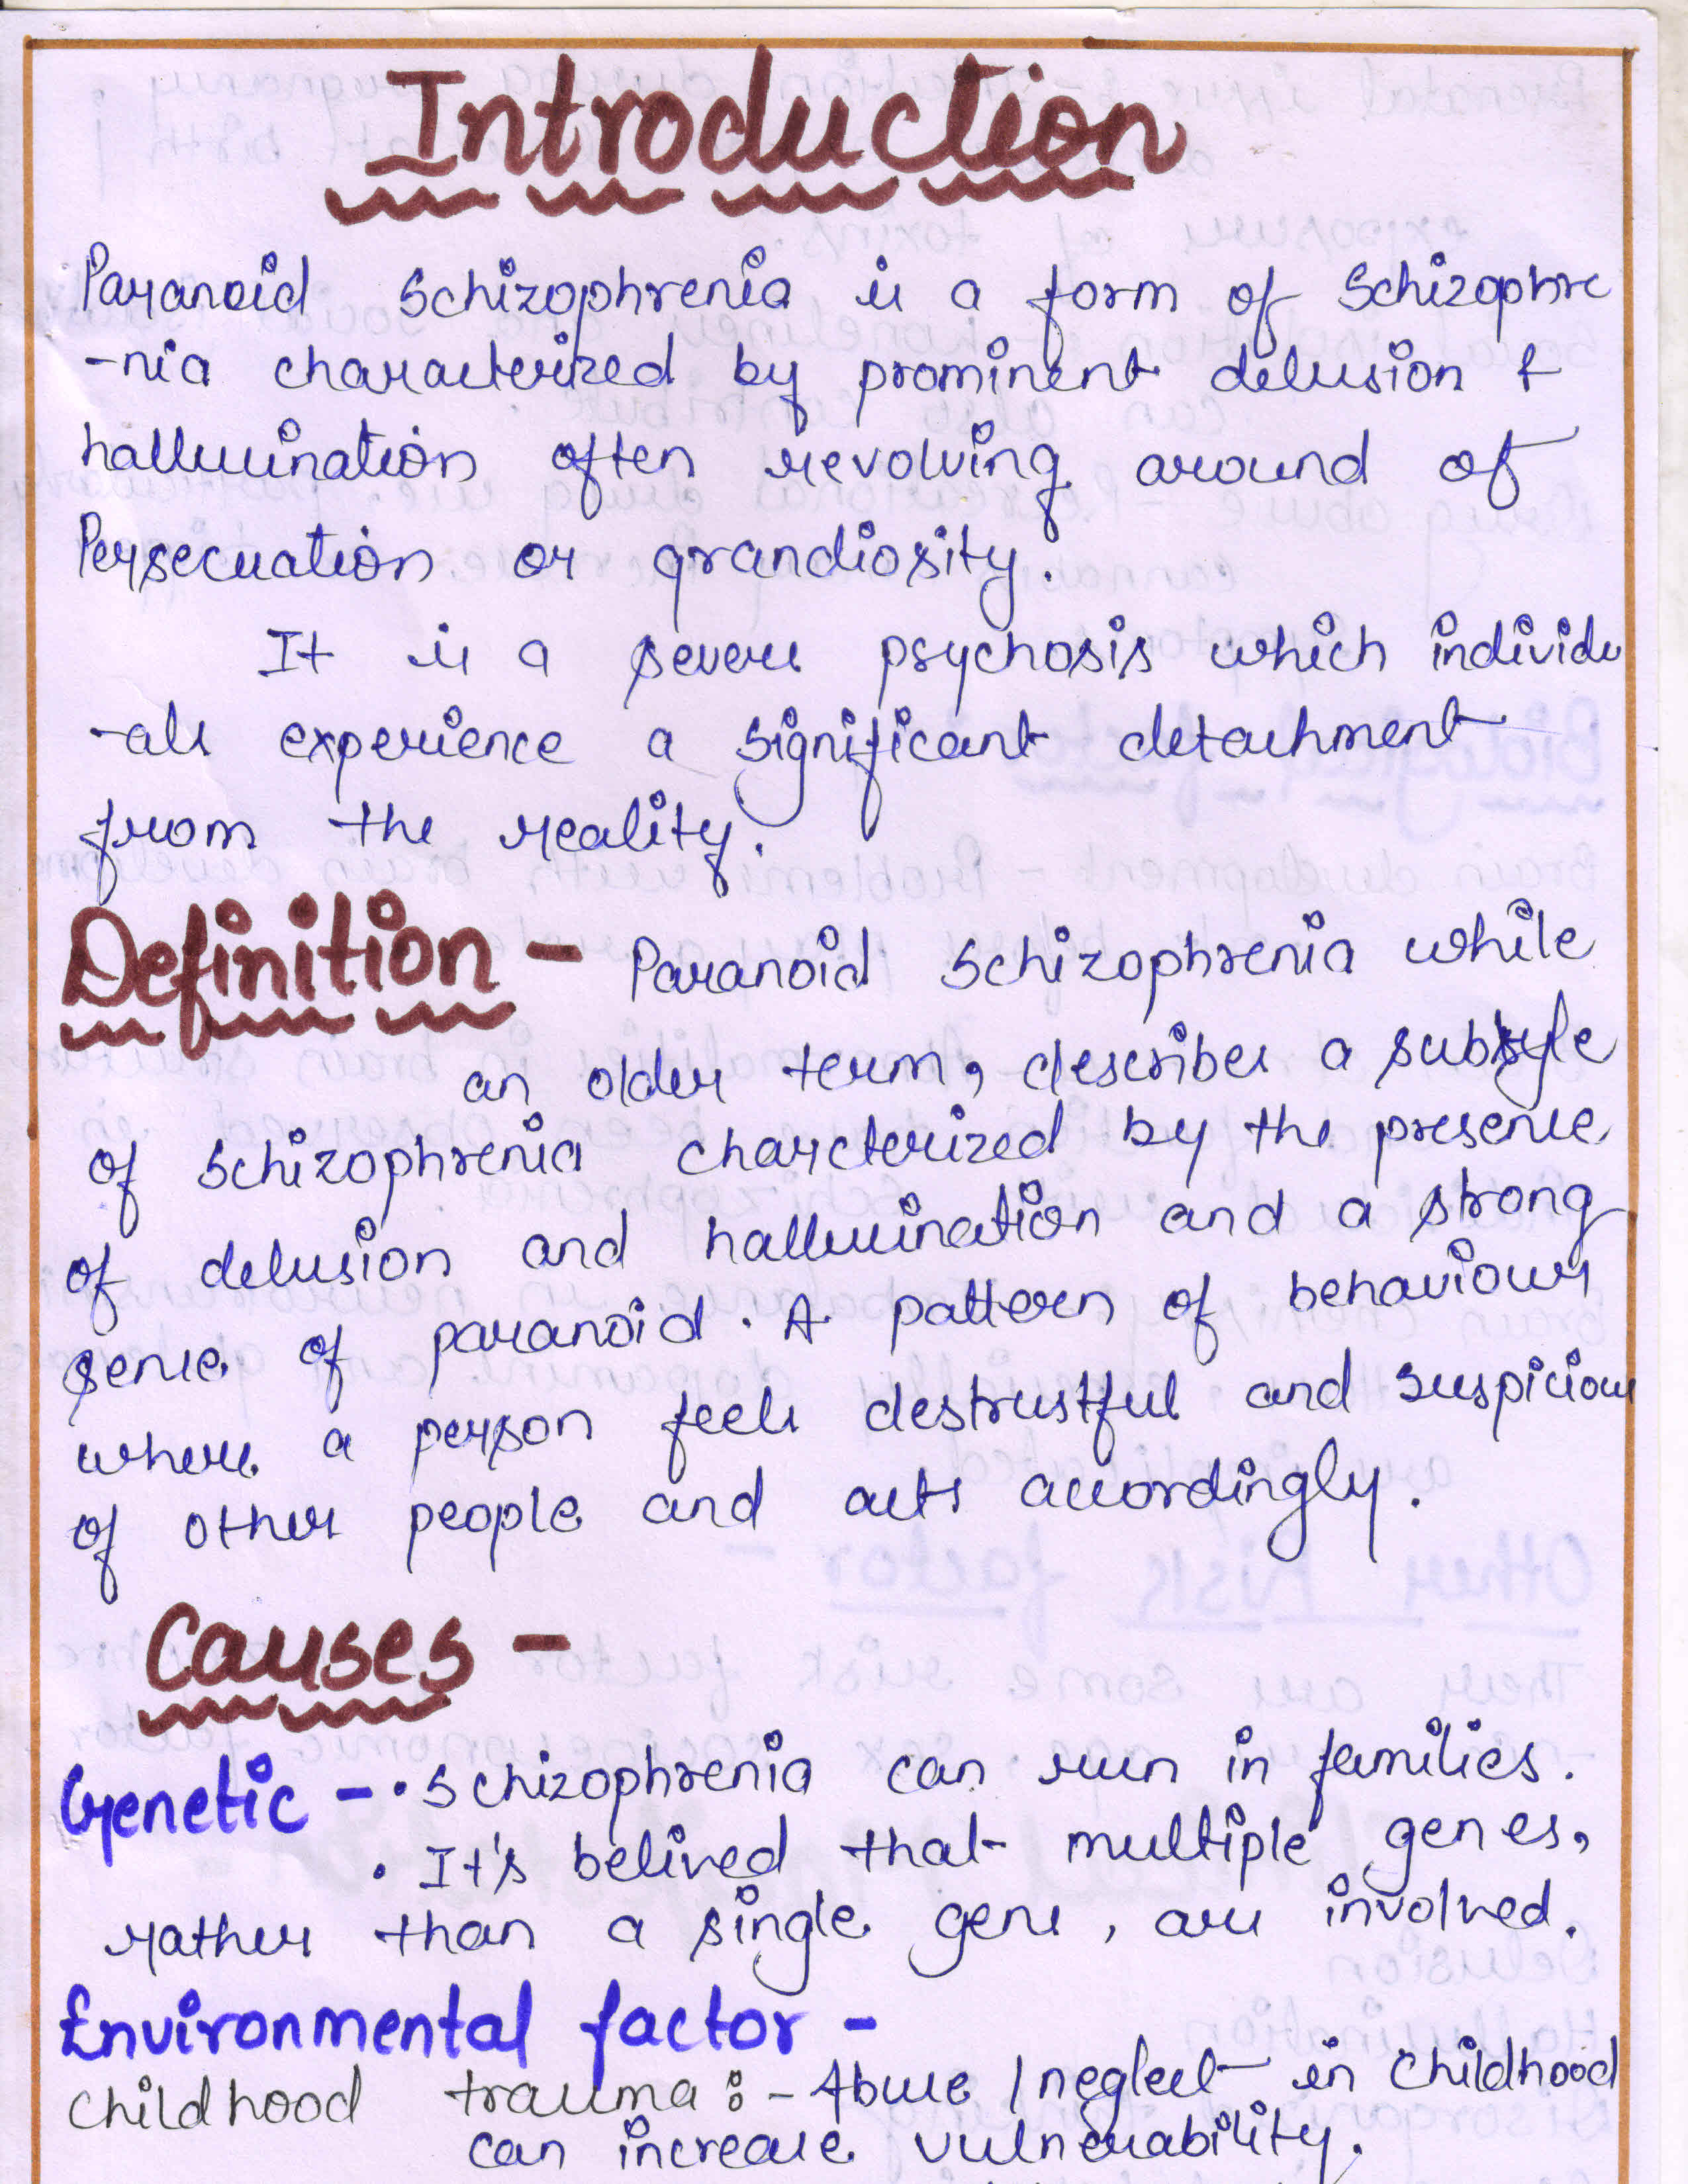 Introduction
Paranoid Schizophrenia is a form of Schizophre
-nia characterized by prominent delusion &
hallucination often revolving around of
Persecuation or grandiosity.
It is a severe psychosis which individu
-als experience a significant detachment
from the reality.
Definition - Paranoid Schizophrenia while
an older term, describes a subtyle
of schizophrenia charcterized by the presence
of delusion and hallucination and a strong
sense of paranoid. A pattern of behaviour
where a person feels destrustful and suspicious
of other people and acts accordingly.
Causes -
Genetic - • Schizophrenia can run in families.
• It's belived that multiple genes,
rather than a single gene, are involved.
Environmental factor -
Childhood trauma :- Abuse / neglect in childhood
can increase vulnerability.